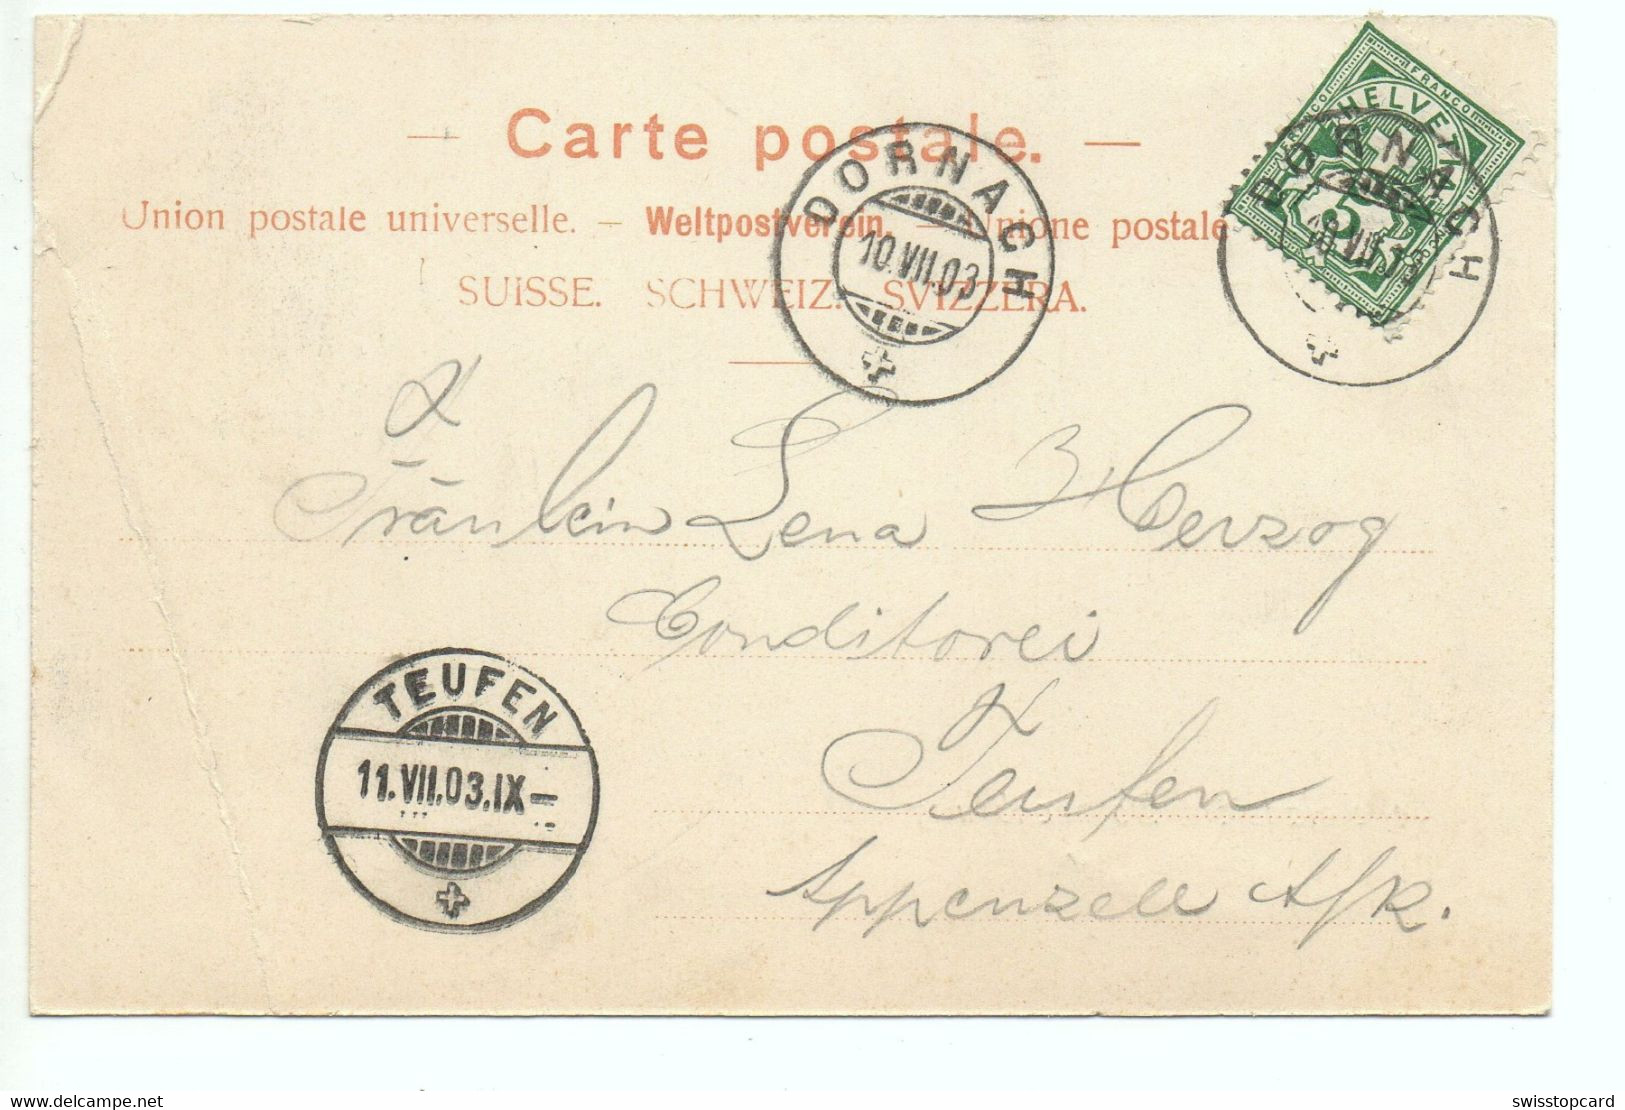 — Carte postale. —
Union postale universelle. – Weltpostverein. – Unione postale
SUISSE. SCHWEIZ. SVIZZERA.
DORNACH
10.VII.03
FRANCO
HELVETIA
5
DORNACH
10.VII.03
Fräulein Lena Herzog
Conditorei
Teufen
Appenzell
TEUFEN
11.VII.03.IX
www.delcampe.net
swisstopcard